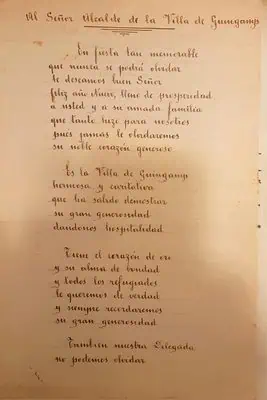 Al Señor Alcalde de la Villa de Guingamp
En fiesta tan memorable
que nunca se podrá olvidar
le deseamos buen Señor
feliz año Nuevo, lleno de prosperidad
a usted y a su amada familia
que tanto hize para nosotros
pues jamás le olvidaremos
su noble corazón generoso
Es la Villa de Guingamp
hermosa y caritativa
que ha salido demostrar
su gran generosidad
dandonos hospitalidad
Tiene el corazón de oro
y su alma de bondad
y todos los refugiados
le queremos de verdad
y siempre recordaremos
su gran generosidad
También nuestra Delegada
no podemos olvidar